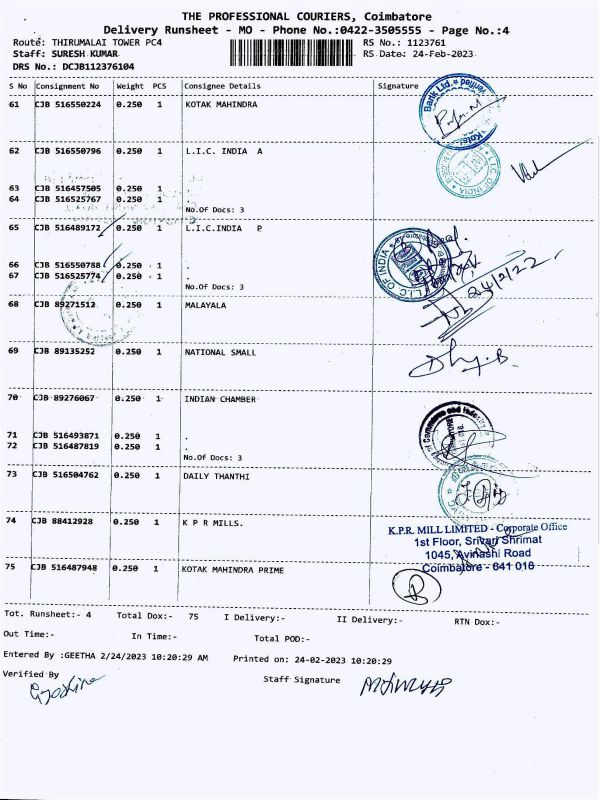 THE PROFESSIONAL COURIERS, Coimbatore
Delivery Runsheet - MO - Phone No.:0422-3505555 - Page No.:4
Route: THIRUMALAI TOWER PC4 RS No.: 1123761
Staff: SURESH KUMAR RS Date: 24-Feb-2023
DRS No.: DCJB112376104
S No Consignment No Weight PCS Consignee Details Signature
61 CJB 516550224 0.250 1 KOTAK MAHINDRA
Bank Ltd. * Verified
Kotak
62 CJB 516550796 0.250 1 L.I.C. INDIA A
L.I.C. OF INDIA
63 CJB 516457505 0.250 1 .
64 CJB 516525767 0.250 1 .
No.Of Docs: 3
65 CJB 516489172 0.250 1 L.I.C.INDIA P
L.I.C. OF INDIA
66 CJB 516550788 0.250 1 .
67 CJB 516525774 0.250 1 .
No.Of Docs: 3
24/2/22
68 CJB 89271512 0.250 1 MALAYALA
69 CJB 89135252 0.250 1 NATIONAL SMALL
70 CJB 89276067 0.250 1 INDIAN CHAMBER
of Commerce and Industry
71 CJB 516493871 0.250 1 .
72 CJB 516487819 0.250 1 .
No.Of Docs: 3
73 CJB 516504762 0.250 1 DAILY THANTHI
74 CJB 88412928 0.250 1 K P R MILLS.
K.P.R. MILL LIMITED - Corporate Office
1st Floor, Srivari Shrimat
1045, Avinashi Road
Coimbatore - 641 018
75 CJB 516487948 0.250 1 KOTAK MAHINDRA PRIME
Tot. Runsheet:- 4 Total Dox:- 75 I Delivery:- II Delivery:- RTN Dox:-
Out Time:- In Time:- Total POD:-
Entered By :GEETHA 2/24/2023 10:20:29 AM Printed on: 24-02-2023 10:20:29
Verified By Staff Signature